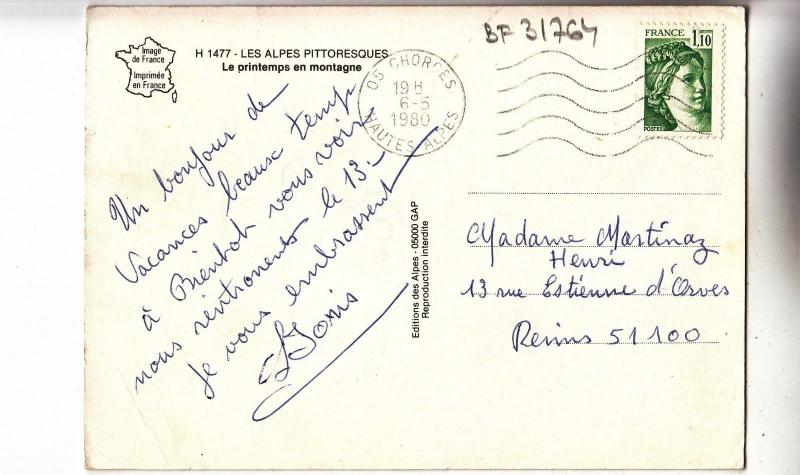 BF 31764
Image
de France
Imprimée
en France
H 1477 - LES ALPES PITTORESQUES
Le printemps en montagne
05 CHORGES
19 H
6-5
1980
HAUTES ALPES
FRANCE
1,10
POSTES
Un bonjour de
Vacances beaux temps
à Bientot vous voir
nous rentronents le 13-
Je vous embrassent
Editions des Alpes - 05000 GAP
Reproduction interdite
Madame Martinaz
Henri
13 rue Estienne d'Orves
Reims 51100